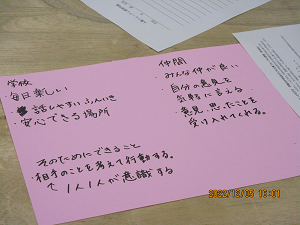 学校
・毎日楽しい
・話しやすいふんいき
・安心できる場所
仲間
・みんな仲が良い
・自分の意見を
気軽に言える
・意見、思ったことを
受け入れてくれる。
そのためにできること
・相手のことを考えて行動する。
↑1人1人が意識する